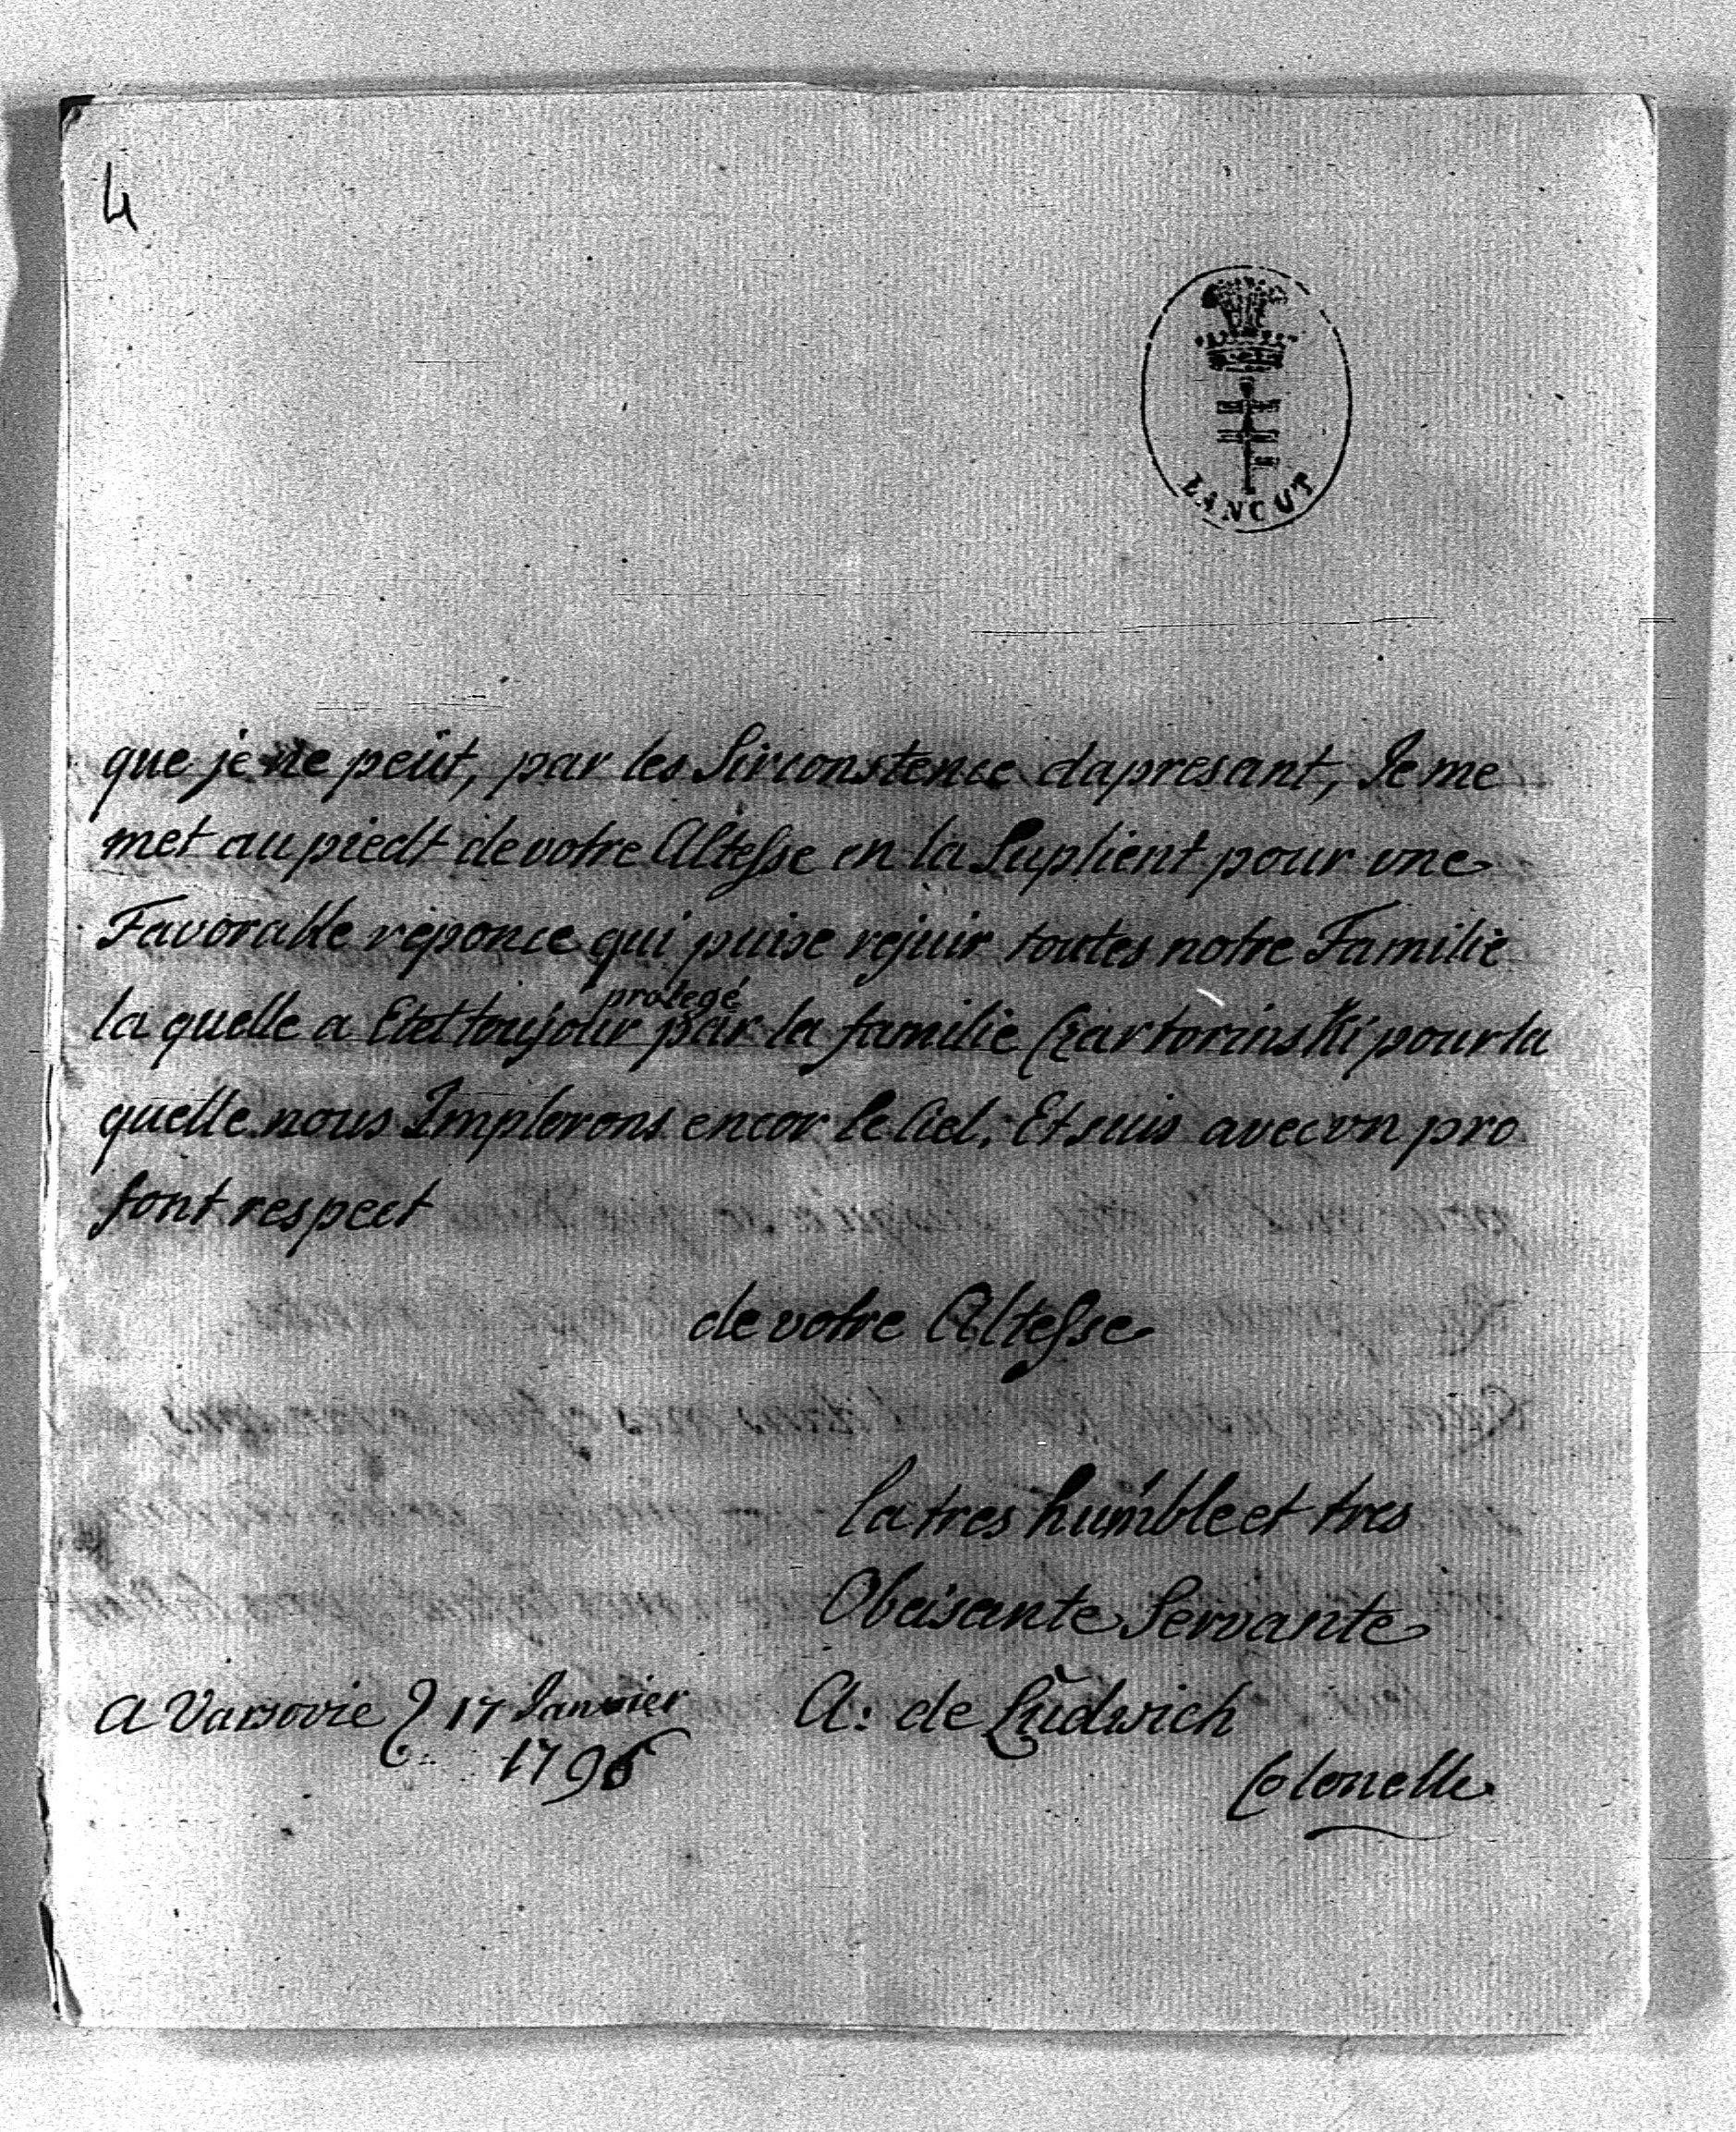 4
LANCUT
que je ne peüt, par les Sirconstence dapresant, Je me
met au piedt de votre Altesse en la Suplient pour une
Favorable réponce qui puise rejuir toutes notre Familie
protegé
la quelle a Etet toujour par la familie Czartorinski pour la
quelle nous Implorons encor le Ciel, Et suis avec vn pro
font respect
de votre Altesse
la tres humble et tres
Obeisante Servante
a Varsovie 17 Janvier
1796
A: de Ludwich
Colonelle